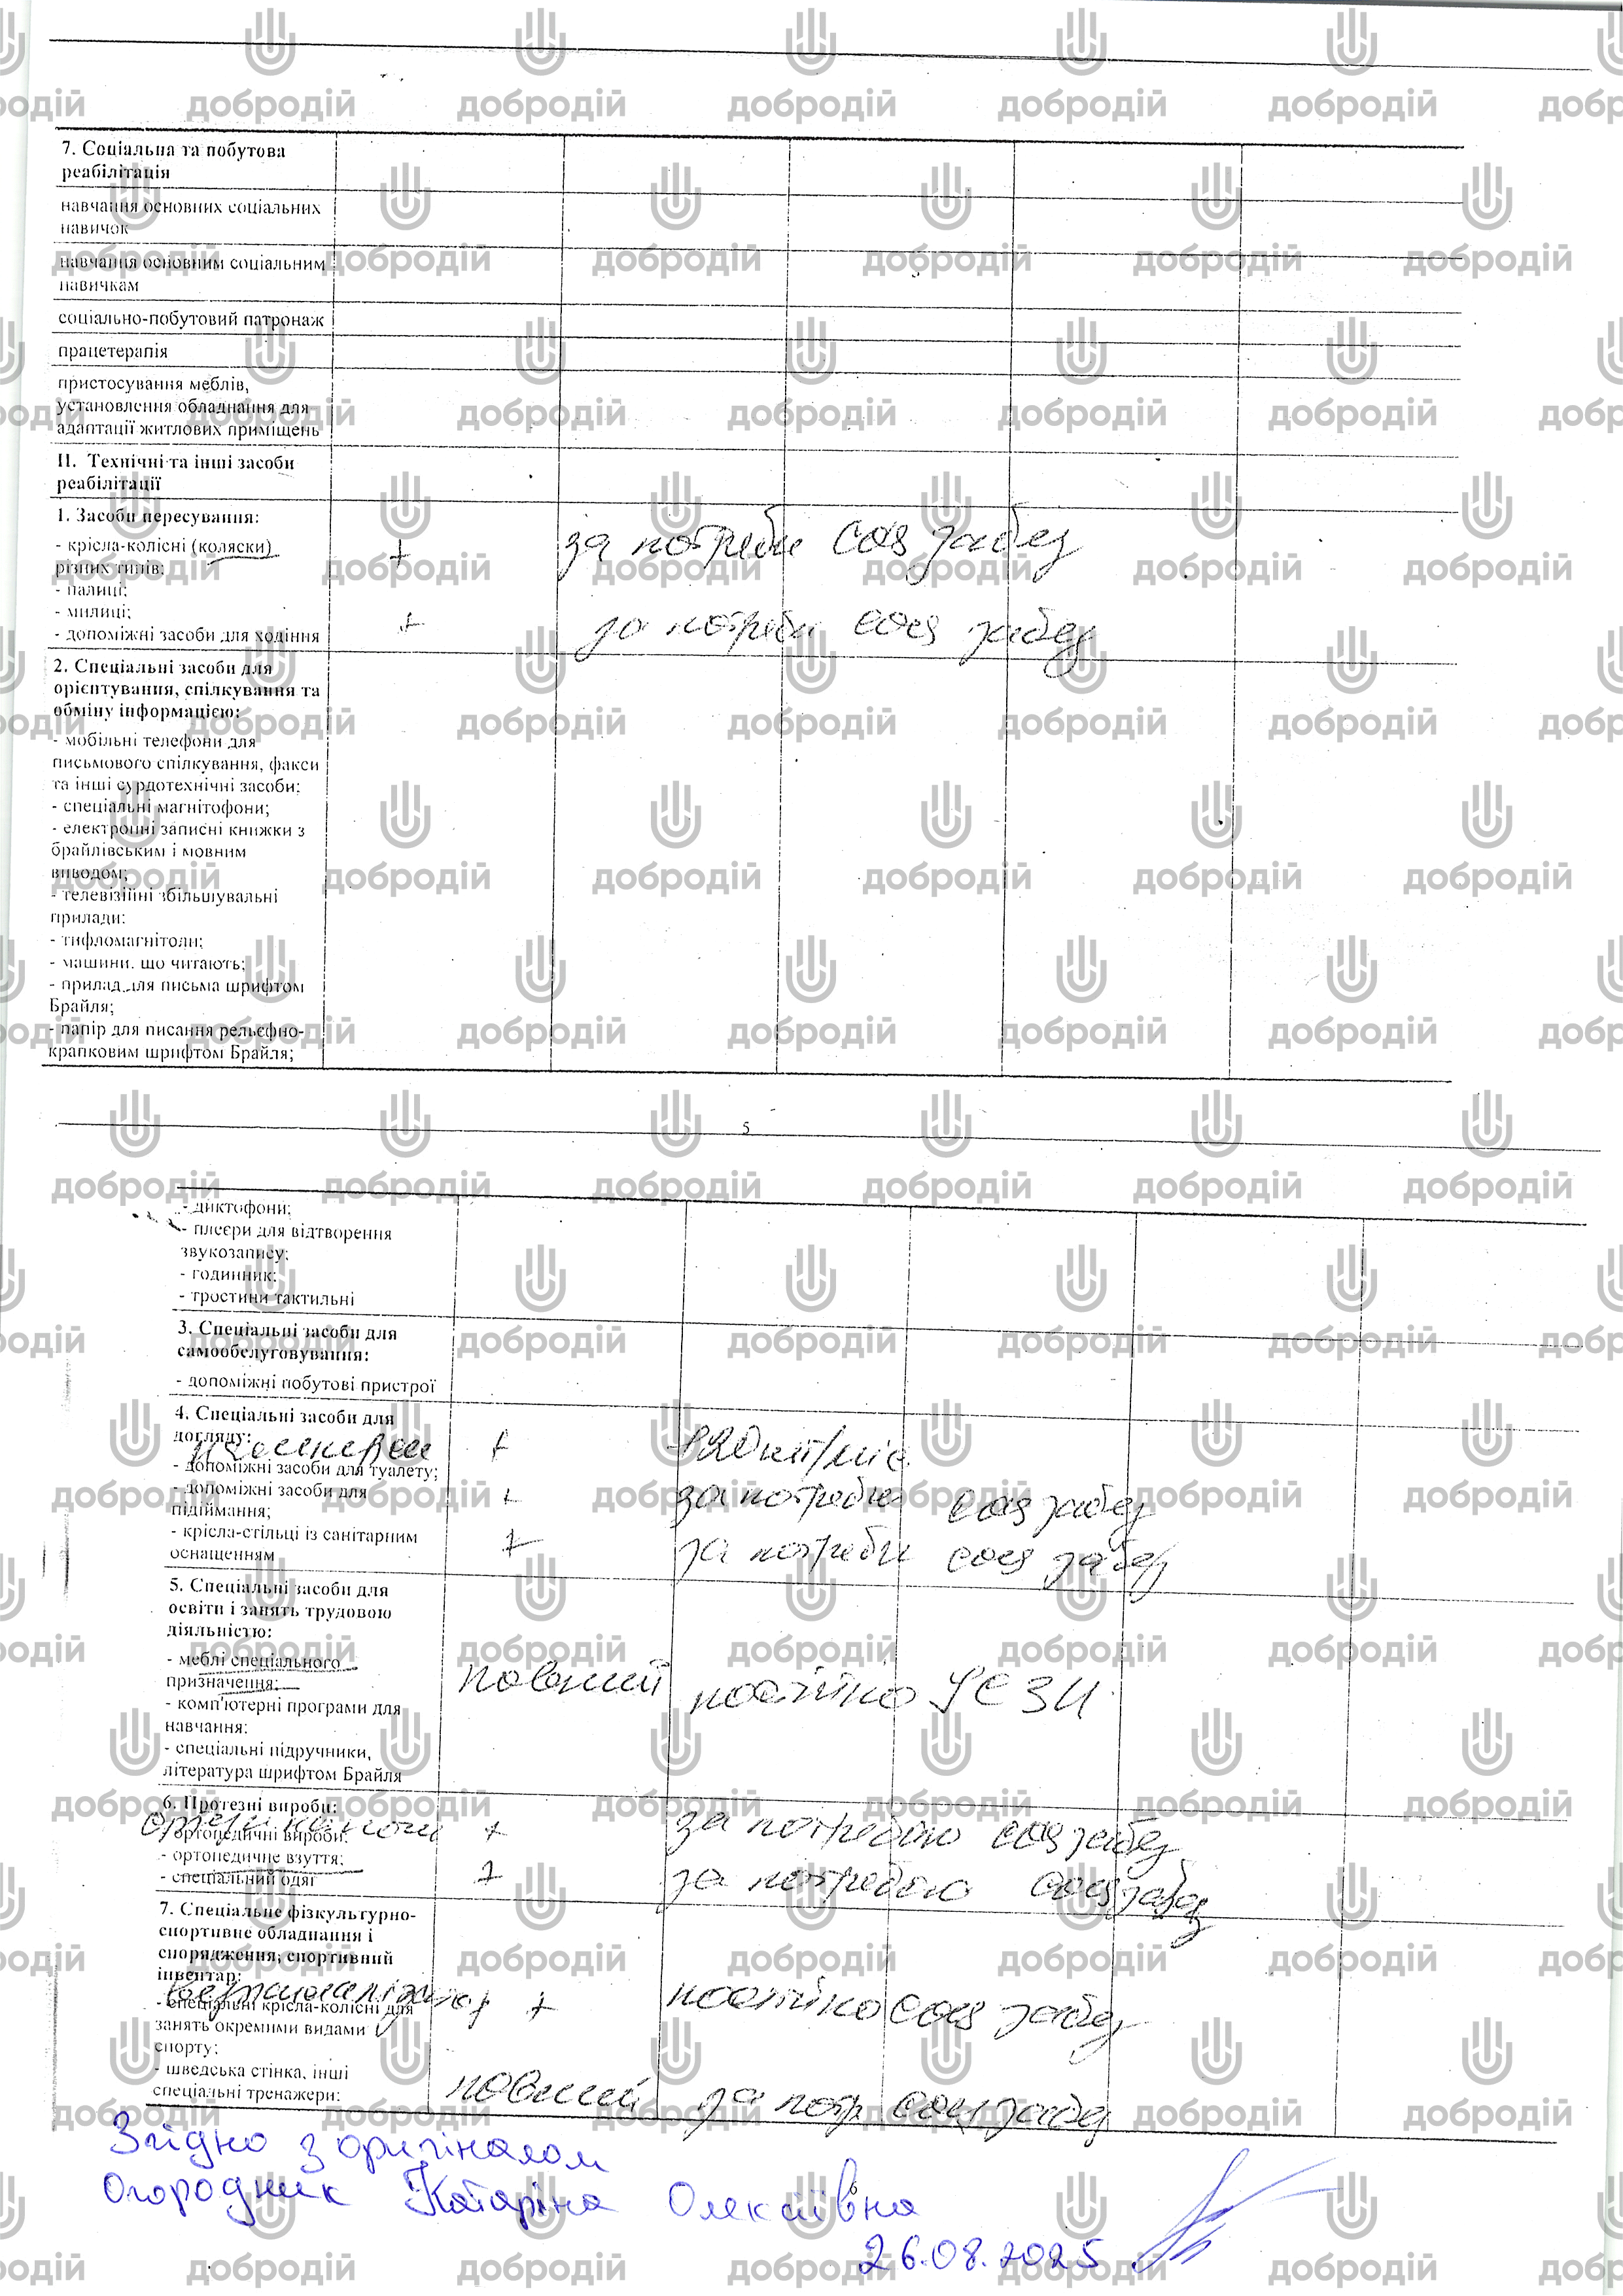 7. Соціальна та побутова
реабілітація
навчання основних соціальних
навичок
навчання основним соціальним
навичкам
соціально-побутовий патронаж
працетерапія
пристосування меблів,
установлення обладнання для
адаптації житлових приміщень
II. Технічні та інші засоби
реабілітації
1. Засоби пересування:
- крісла-колісні (коляски) + за потреби соц забез
різних типів;
- палиці;
- милиці;
- допоміжні засоби для ходіння + за потреби соц забез
2. Спеціальні засоби для
орієнтування, спілкування та
обміну інформацією:
- мобільні телефони для
письмового спілкування, факси
та інші сурдотехнічні засоби;
- спеціальні магнітофони;
- електронні записні книжки з
брайлівським і мовним
виводом;
- телевізійні збільшувальні
прилади;
- тифломагнітоли;
- машини, що читають;
- прилад для письма шрифтом
Брайля;
- папір для писання рельєфно-
крапковим шрифтом Брайля;
5
- диктофони;
- плеєри для відтворення
звукозапису;
- годинник;
- тростини тактильні
3. Спеціальні засоби для
самообслуговування:
- допоміжні побутові пристрої
4. Спеціальні засоби для
догляду:
+
- допоміжні засоби для туалету;
- допоміжні засоби для + за потреби соц забез
підіймання;
- крісла-стільці із санітарним + за потреби соц забез
оснащенням
5. Спеціальні засоби для
освіти і занять трудовою
діяльністю:
- меблі спеціального
призначення; повний постійно
- комп'ютерні програми для
навчання;
- спеціальні підручники,
література шрифтом Брайля
6. Протезні вироби:
+ за потребою соц забез
- ортопедичні вироби;
- ортопедичне взуття;
- спеціальний одяг + за потребою соц забез
7. Спеціальне фізкультурно-
спортивне обладнання і
спорядження, спортивний
інвентар:
вертикалізатор + постійно соц забез
- спеціальні крісла-колісні для
занять окремими видами
спорту;
- шведська стінка, інші
спеціальні тренажери; повний за потр соц забез
Згідно з оригіналом
6
Огородник Катаріна Олексіївна
26.08.2025
добродій